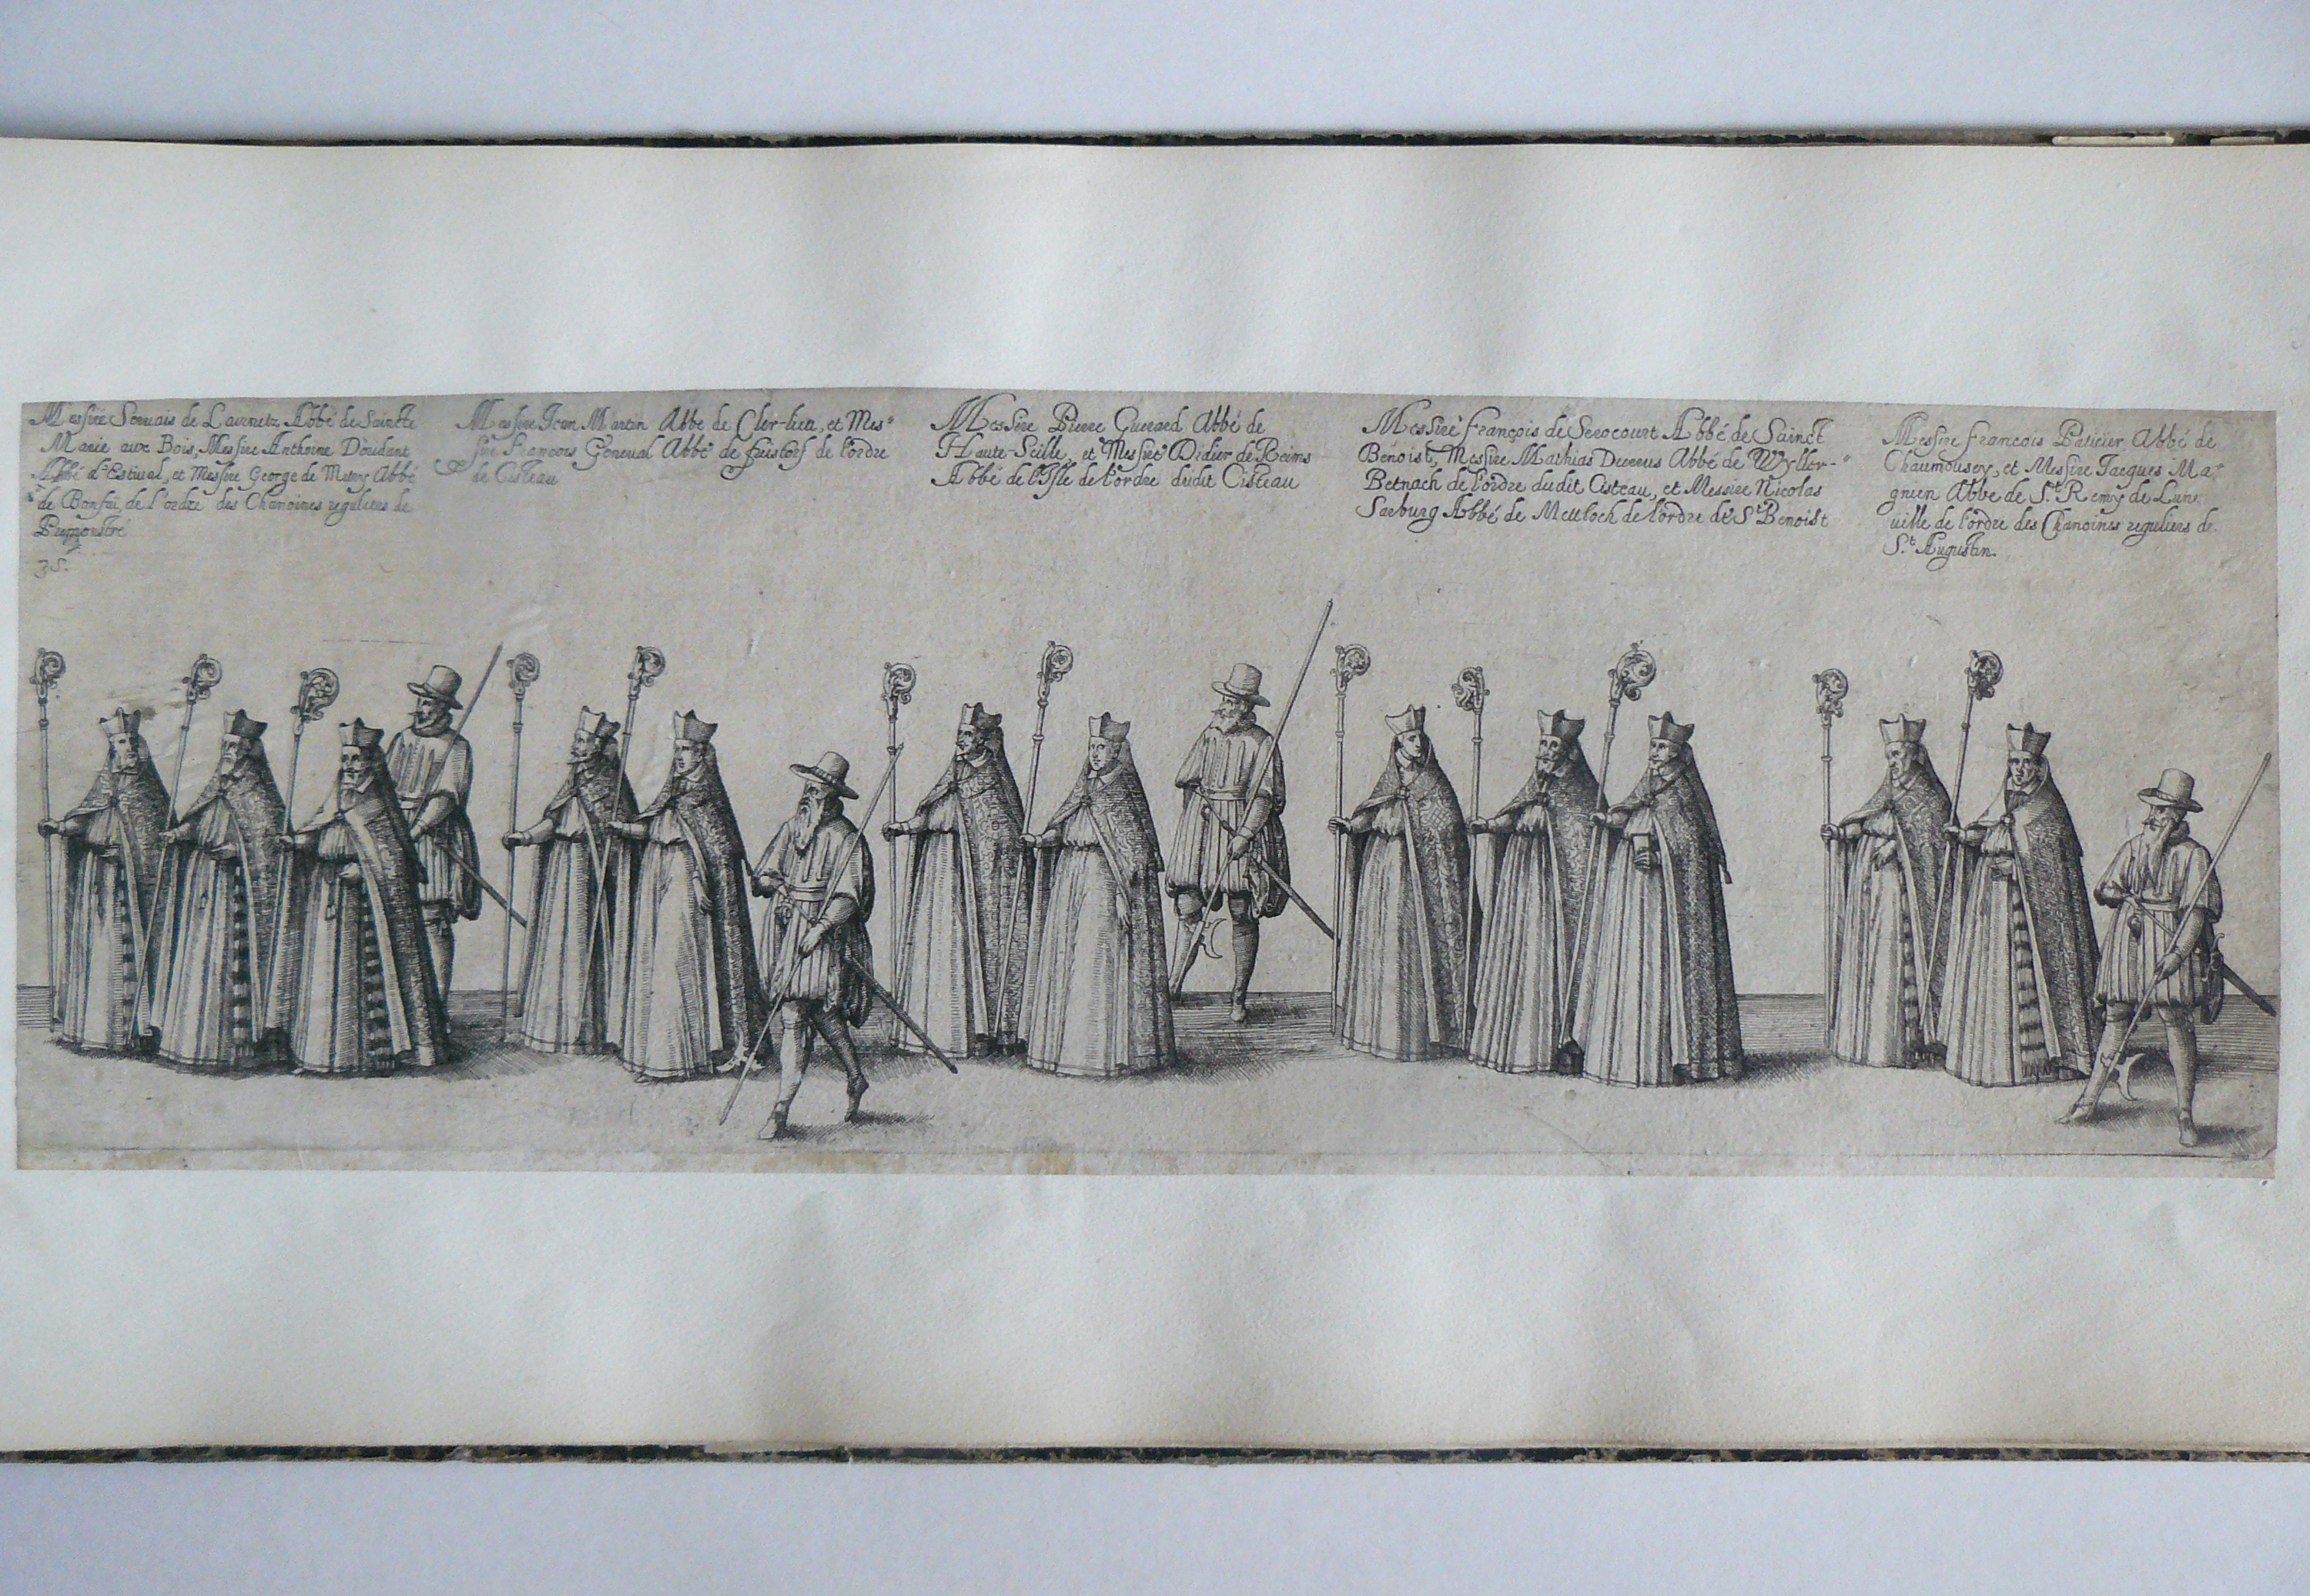 Messire Seruais de Lairuelz Abbé de Saincte
Marie aux Bois, Messire Anthoine Doridant
Abbé d'Estiual, et Messire George de Mitry Abbé
de Bonfaÿ, de l'ordre des Chanoines reguliers de
Premonstré
35.
Messire Jean Martin Abbe de Cler-lieu, et Mes=
sire Francois General Abbé de de l'ordre
de Cisteau
Messire Pierre Guerard Abbé de
Haute-Seille, et Messire Didier de Reims
Abbé de l'Isle de l'ordre dudit Cisteau
Messire François de Serocourt Abbé de Sainct
Benoist, Messire Mathias Abbé de Wyller-
Betnach de l'ordre dudit Cisteau, et Messire Nicolas
Sarburg Abbé de Metloch de l'ordre de St Benoist
Messire Francois Paticier Abbé de
Chaumousey, et Messire Jacques Ma=
gnien Abbe de S.t Remy de Lune
uille de l'ordre des Chanoines reguliers de
S.t Augustin.